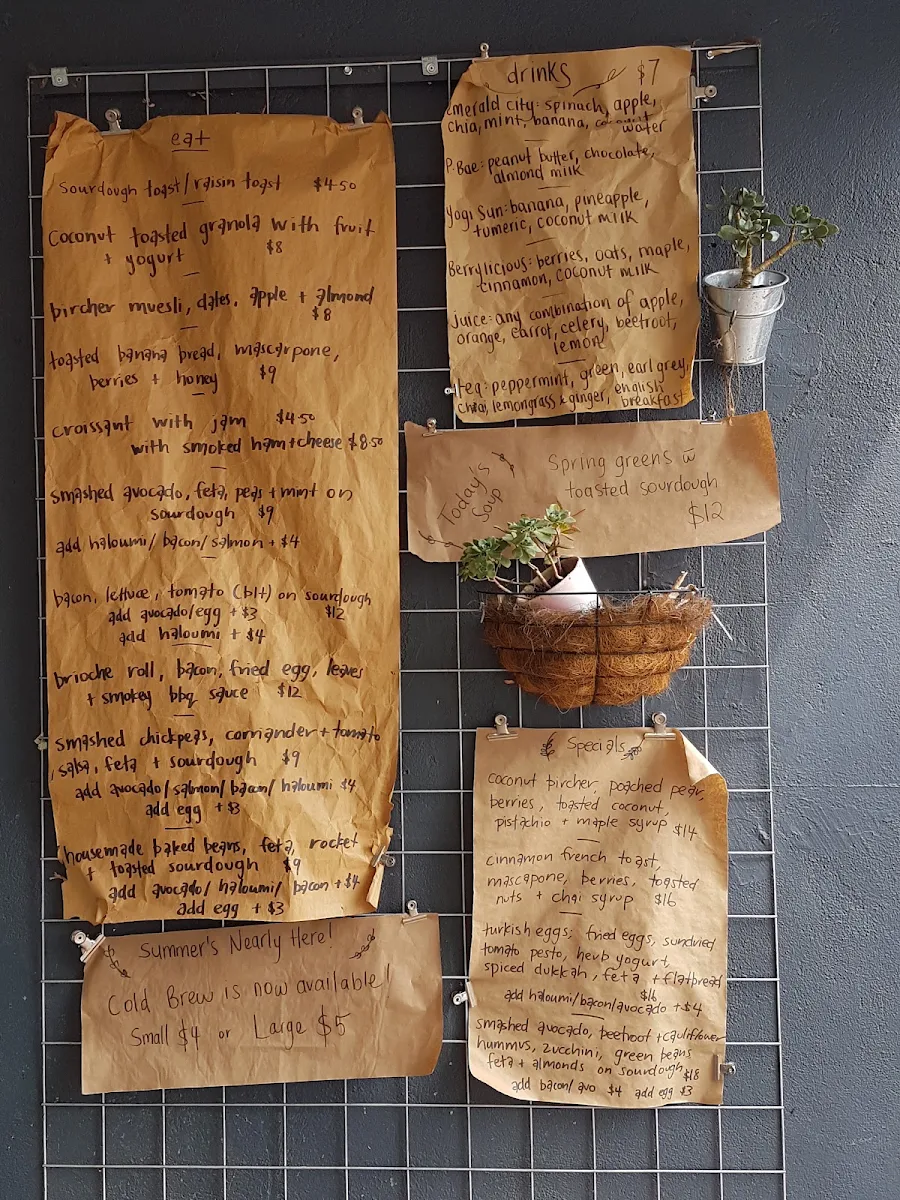 eat
sourdough toast/raisin toast $4.50
coconut toasted granola with fruit
+ yogurt $8
bircher muesli, dates, apple + almond
$8
toasted banana bread, mascarpone,
berries + honey $9
croissant with jam $4.50
with smoked ham+cheese $8.50
smashed avocado, feta, peas + mint on
sourdough $9
add haloumi/bacon/salmon + $4
bacon, lettuce, tomato (blt) on sourdough
add avocado/egg + $3 $12
add haloumi + $4
brioche roll, bacon, fried egg, leaves
+ smokey bbq sauce $12
smashed chickpeas, corriander + tomato
salsa, feta + sourdough $9
add avocado/salmon/bacon/haloumi $4
add egg + $3
housemade baked beans, feta, rocket
+ toasted sourdough $9
add avocado/haloumi/bacon + $4
add egg + $3
Summer's Nearly Here!
Cold Brew is now available!
Small $4 or Large $5
drinks $7
emerald city: spinach, apple,
chia, mint, banana, coconut
water
P.Bae: peanut butter, chocolate,
almond milk
Yogi Sun: banana, pineapple,
tumeric, coconut milk
Berrylicious: berries, oats, maple,
cinnamon, coconut milk
juice: any combination of apple,
orange, carrot, celery, beetroot,
lemon
tea: peppermint, green, earl grey,
chai, lemongrass & ginger, english
breakfast
Today's
Soup
Spring greens w̄
toasted sourdough
$12
Specials
coconut bircher, poached pear,
berries, toasted coconut,
pistachio + maple syrup $14
cinnamon french toast,
mascapone, berries, toasted
nuts + chai syrup $16
turkish eggs; fried eggs, sundried
tomato pesto, herb yogurt,
spiced dukkah, feta + flatbread
$16
add haloumi/bacon/avocado + $4
smashed avocado, beetroot + cauliflower
hummus, zucchini, green beans
feta + almonds on sourdough $18
add bacon/avo $4 add egg $3